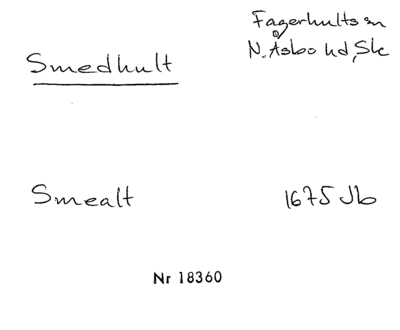 Fagerhults sn
Smedhult
N. Åsbo hd, Sk
Smealt
1675 Jb
Nr 18360